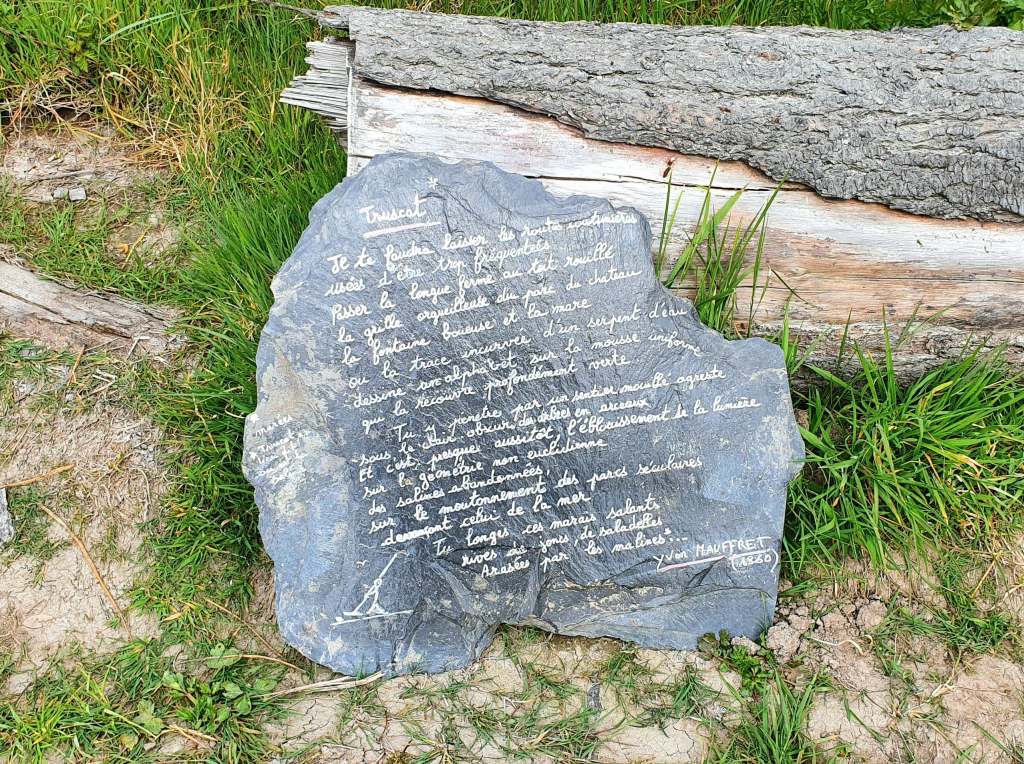 Truscat
Je te faudra laisser les routes coutumières
usées d'être trop fréquentées
Passer la longue ferme au toit rouillé
la grille orgueilleuse du parc du chateau
la fontaine boueuse et la mare
ou la trace incurvée d'un serpent d'eau
dessine un alphabet sur la mousse uniforme
qui la recouvre profondément verte
Tu y penetre par un sentier mouillé agreste
sous le clair obscur des arbres en arceaux
Et c'est presque aussitot l'éblouissement de la lumière
sur la géométrie non euclidienne
des salines abandonnées,
sur le moutonnement des parcs séculaires
devançant celui de la mer
Tu longes ces marais salants
rives aux joncs de baladelles
Arasées par les malines...
Yvon MAUFFRET